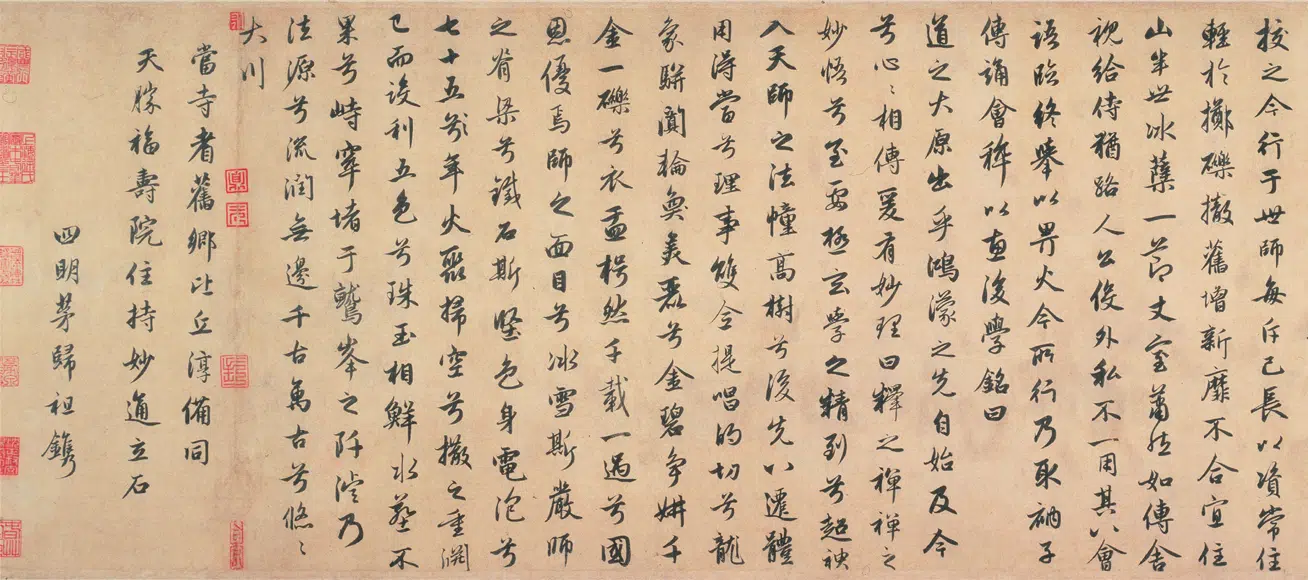 校之今行于世師每斥己長以資常住
輕於擲礫撤舊增新靡不合宜住
山半世冰蘗一節丈室蕭然如傳舍
視給侍猶路人公役外私不一用其八會
語臨終舉以畀火今所行乃耿衲子
傳誦會稡以惠後學銘曰
道之大原出乎鴻濛之先自始及今
兮心心相傳爰有妙理曰釋之禪禪之
妙悟兮至要極玄學之精到兮超袂
入天師之法幢高樹兮後先八遷體
用得當兮理事雙全提唱的切兮龍
象駢闐輪奐美麗兮金碧爭妍千
金一礫兮衣盂枵然千載一遇兮國
恩優焉師之面目兮冰雪斯嚴師
之脊梁兮鐵石斯堅色身電泡兮
七十五年火聚掃空兮撒之重淵
已而設利五色兮珠玉相鮮水葬不
果兮峙窣堵于鷲峯之阡滹乃
法源兮流潤無邊千古萬古兮悠悠
大川
當寺耆舊鄉比丘淳備同
天勝福壽院住持妙通立石
四明茅歸祖鐫